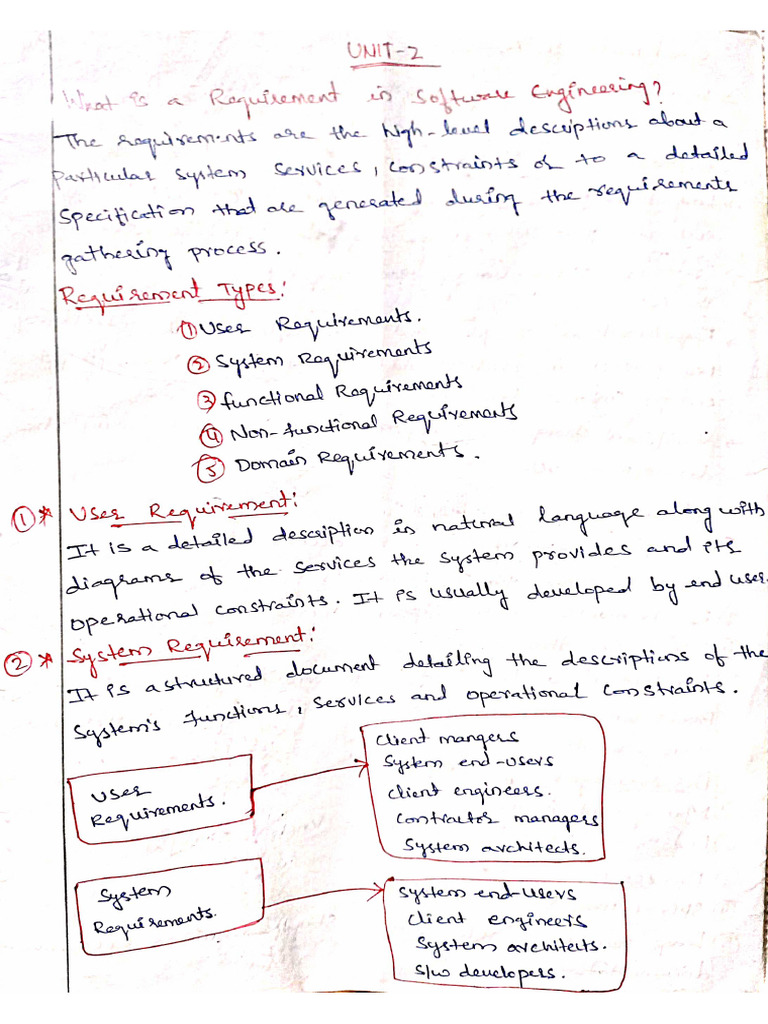 UNIT-2
What is a Requirement in Software Engineering?
The requirements are the high-level descriptions about a
particular system services, constraints or to a detailed
specification that are generated during the requirements
gathering process.
Requirement Types:
① User Requirements.
② System Requirements
③ functional Requirements
④ Non-functional Requirements
⑤ Domain Requirements.
①* User Requirement:
It is a detailed description in natural language along with
diagrams of the services the system provides and its
operational constraints. It is usually developed by end user.
②* System Requirement:
It is a structured document detailing the descriptions of the
system's functions, services and operational constraints.
User
Requirements.
Client mangers
System end-users
Client engineers.
Contractor managers
System architects.
System
Requirements.
System end-users
Client engineers
System architects.
S/w developers.